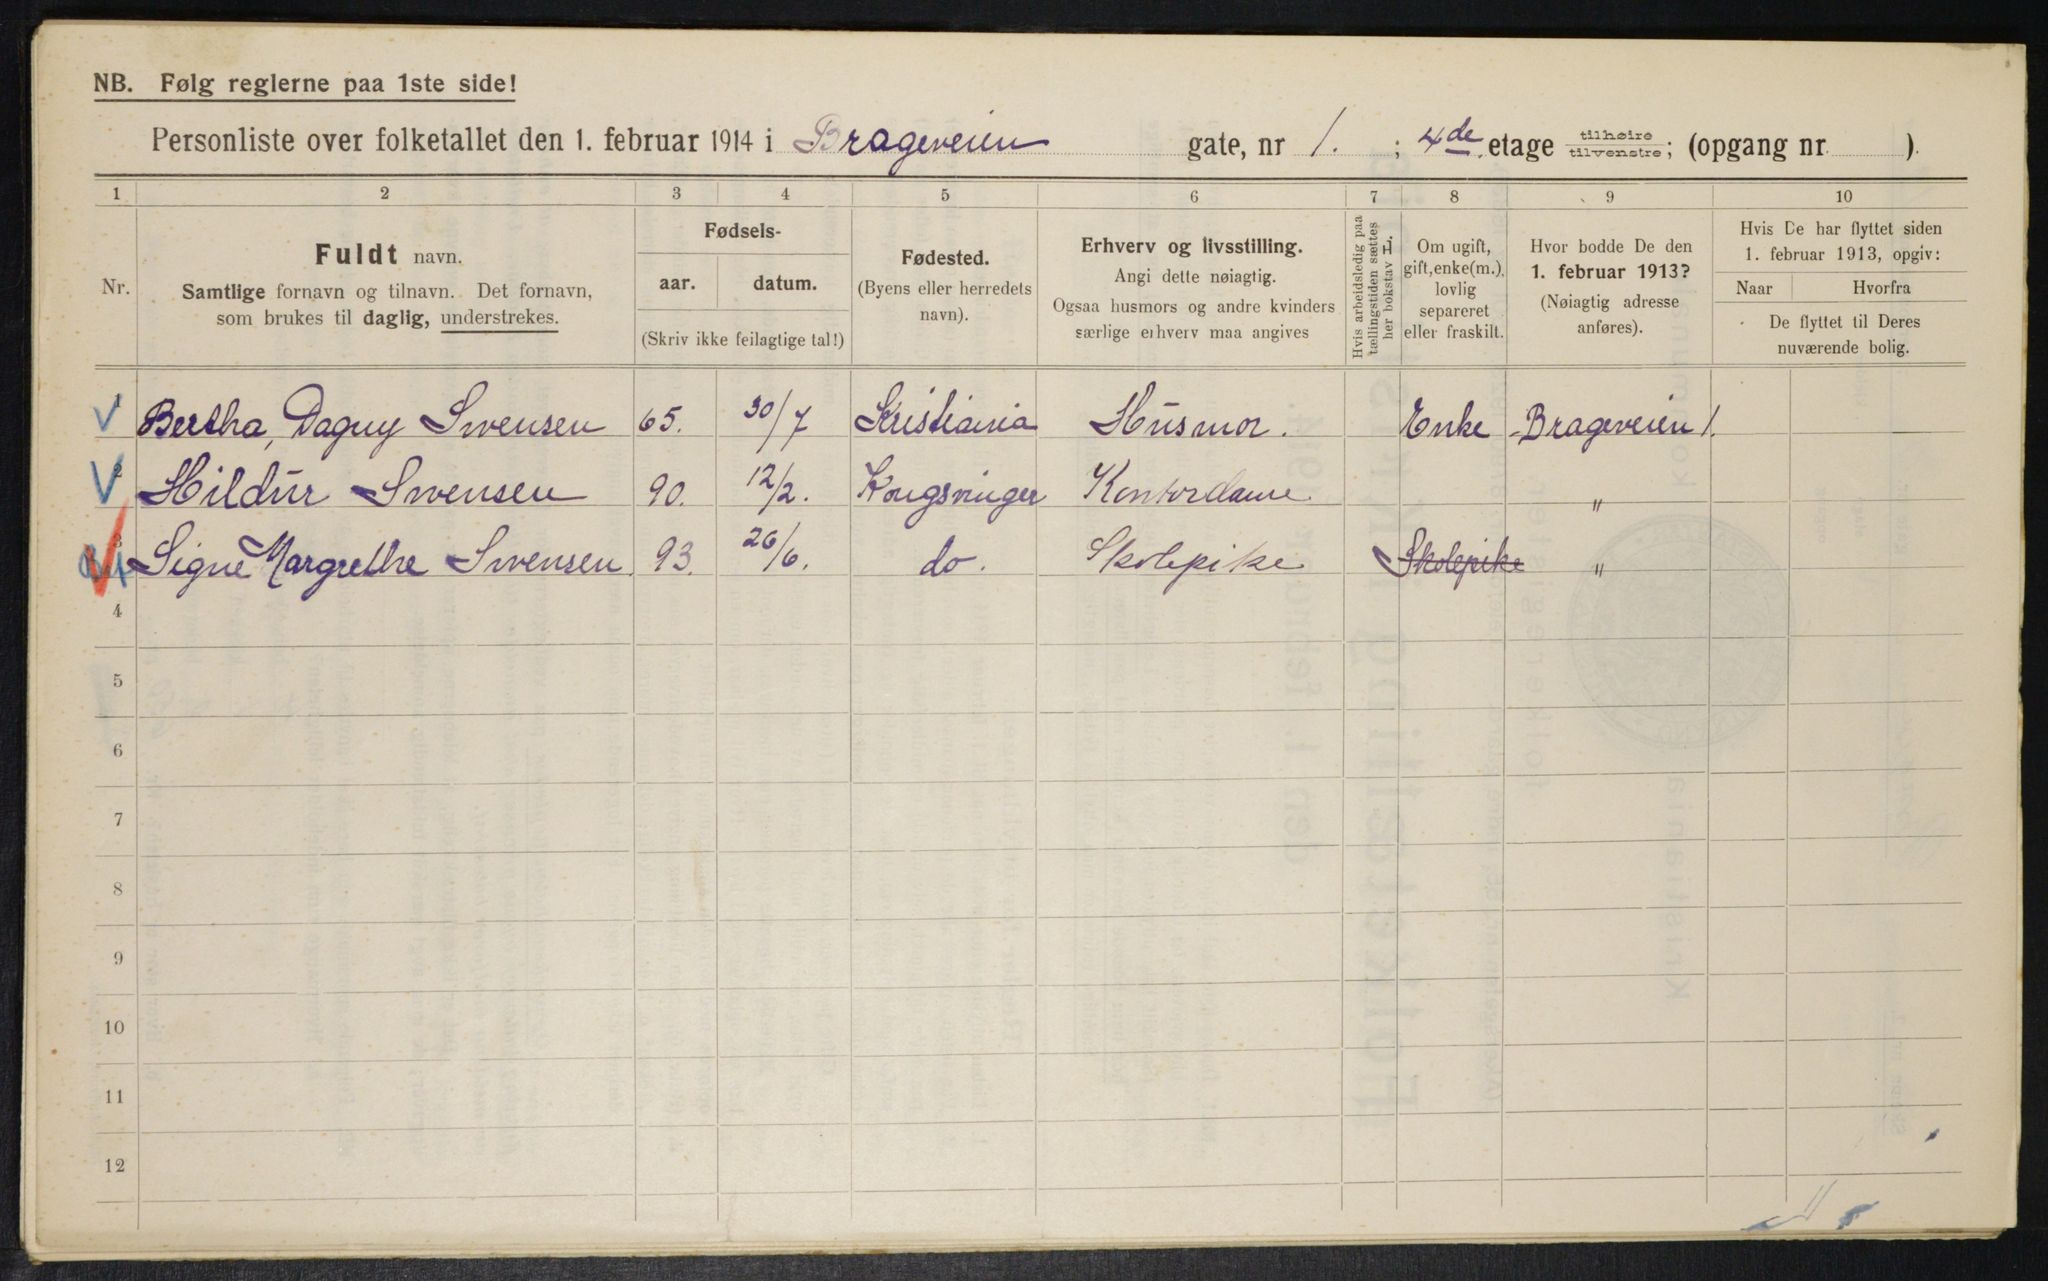 NB. Følg reglerne paa 1ste side!
Personliste over folketallet den 1. februar 1914 i Brageveien gate, nr 1. ; 4de etage tilhøire tilvenstre; (opgang nr )
1 2 3 4 5 6 7 8 9 10
Nr.
Fuldt navn.
Samtlige fornavn og tilnavn. Det fornavn,
som brukes til daglig, understrekes.
Fødsels-
aar. datum.
(Skriv ikke feilagtige tal!)
Fødested.
(Byens eller herredets
navn).
Erhverv og livsstilling.
Angi dette nøiagtig.
Ogsaa husmors og andre kvinders
særlige erhverv maa angives
Hvis arbeidsledig paa
tællingstiden sættes
her bokstav L.
Om ugift,
gift, enke(m.),
lovlig
separeret
eller fraskilt.
Hvor bodde De den
1. februar 1913?
(Nøiagtig adresse
anføres).
Hvis De har flyttet siden
1. februar 1913, opgiv:
Naar Hvorfra
De flyttet til Deres
nuværende bolig.
1 Bertha, Dagny Swensen 65. 30/7 Kristiania Husmor. Enke Brageveien 1.
2 Hildur Swensen 90. 12/2. Kongsvinger Kontordame "
3 Signe Margrethe Swensen 93. 26/6. do. Skolepike Skolepike "
4
5
6
7
8
9
10
11
12